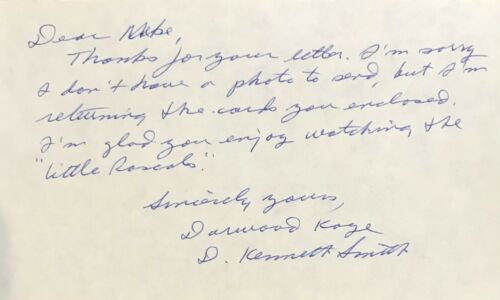 Dear Mike,
Thanks for your letter. I'm sorry
I don't have a photo to send, but I'm
returning the cards you enclosed.
I'm glad you enjoy watching the
"Little Rascals".
Sincerely yours,
Darwood Kaye
D. Kenneth Smith